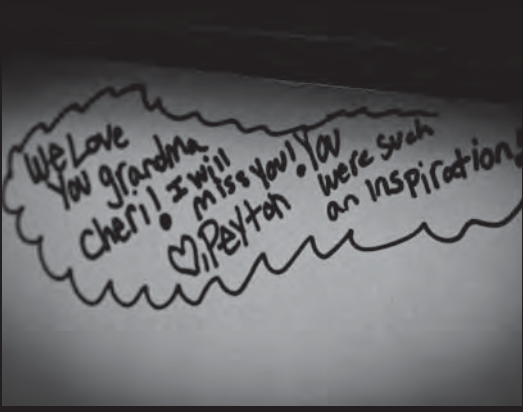 We Love
You grandma
cheri! I will
miss you! You
were such
an inspiration!
♡, Peyton